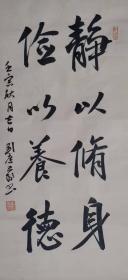 静以脩身
儉以養德
壬寅秋月吉日